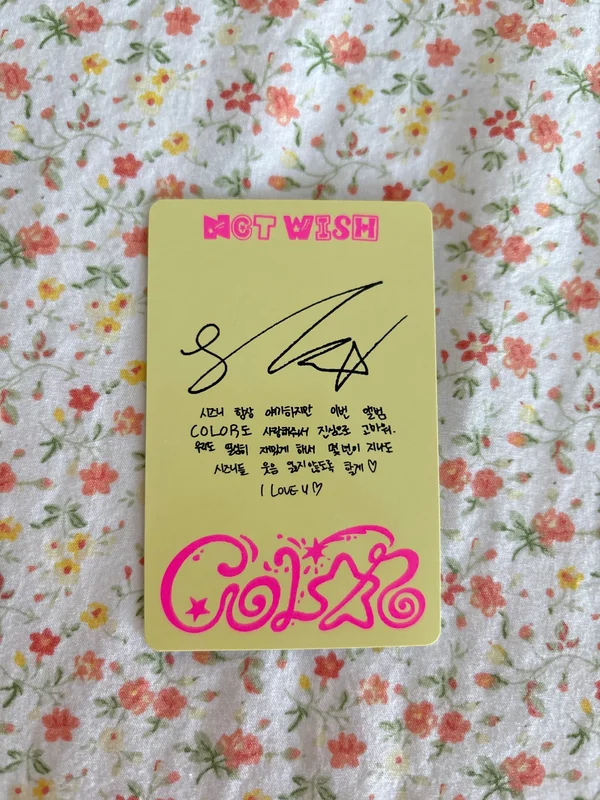 NCT WISH
시즈니 항상 얘기하지만 이번 앨범
COLOR도 사랑해주셔서 진심으로 고마워.
우리도 열심히 재밌게 해서 몇번이 지나도
시즈니들 웃음 잃지않도록 할게 ♡
I LOVE U ♡
COLOR